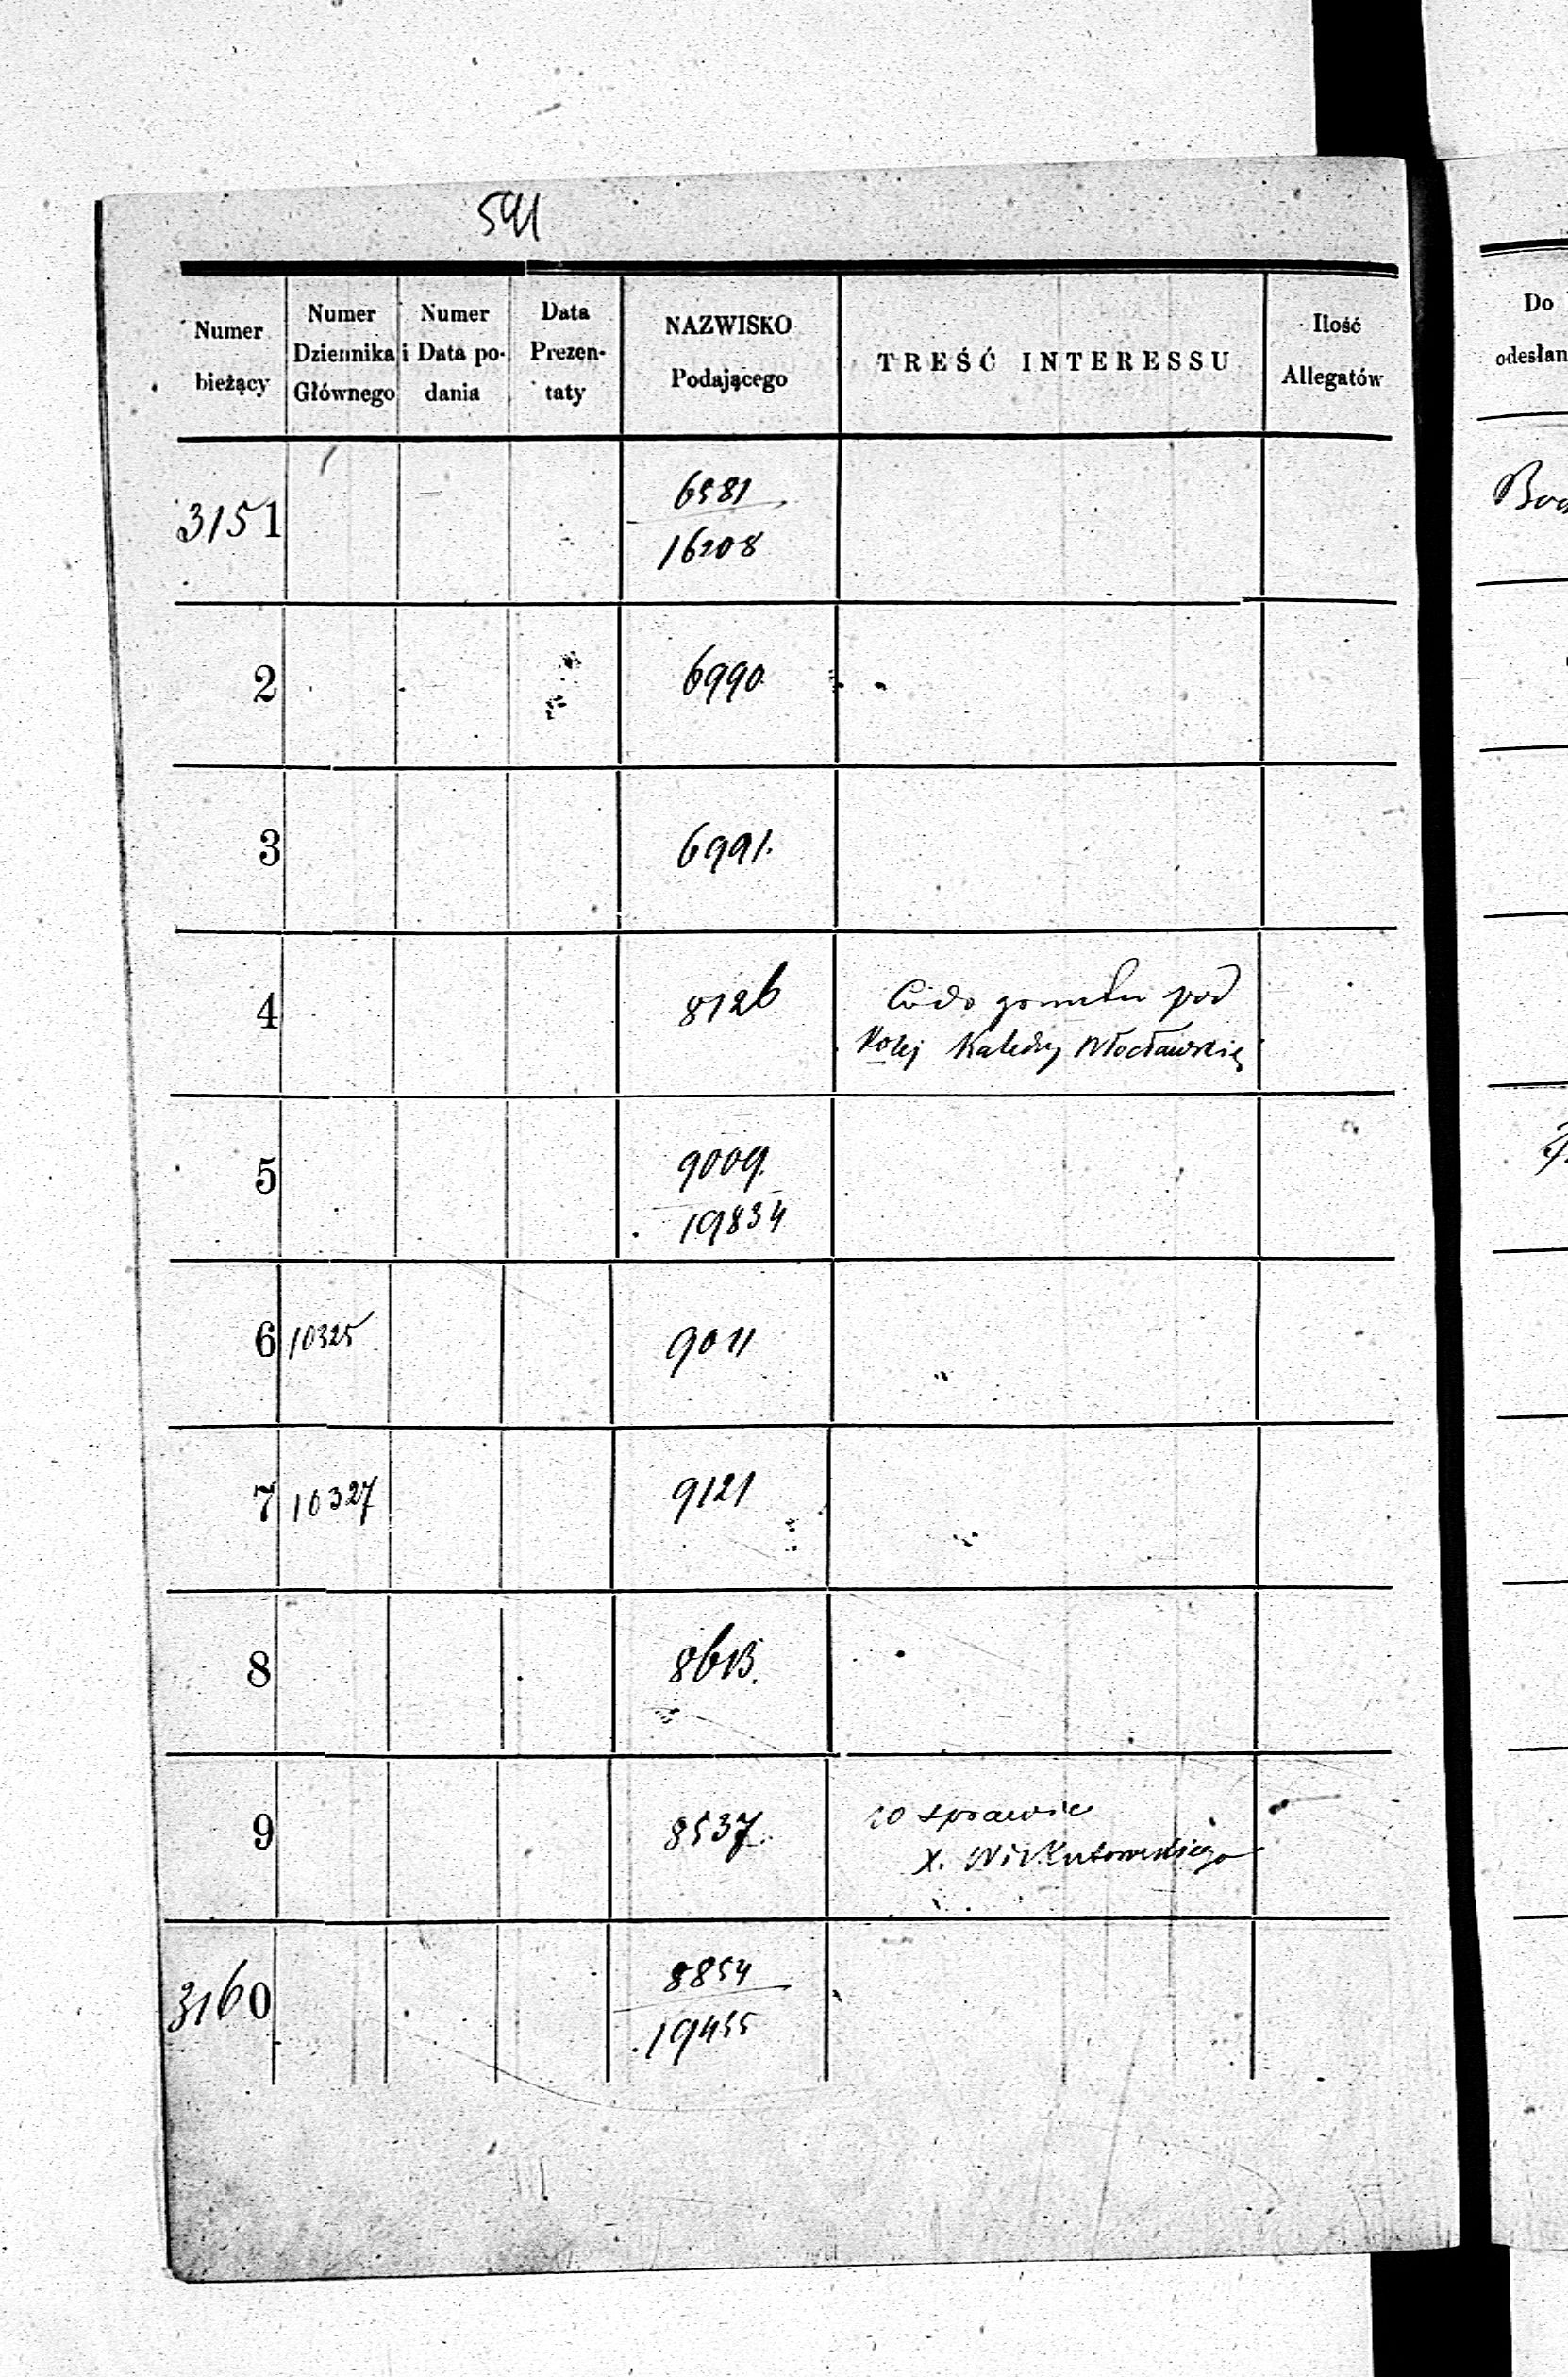 591
Numer bieżący
Numer Dziennika Głównego
Numer i Data podania
Data Prezentaty
NAZWISKO Podającego
TREŚĆ INTERESSU
Ilość Allegatów
Do odesłan
3151 6581
16208
2 6990
3 6991.
4 8126 Co do gruntu pod
Kolej Katedry Włocławskiej
5 9009
19834
6 10325 9011
7 10327 9121
8
9 8537 w sprawie
X.
3160 8854
19455